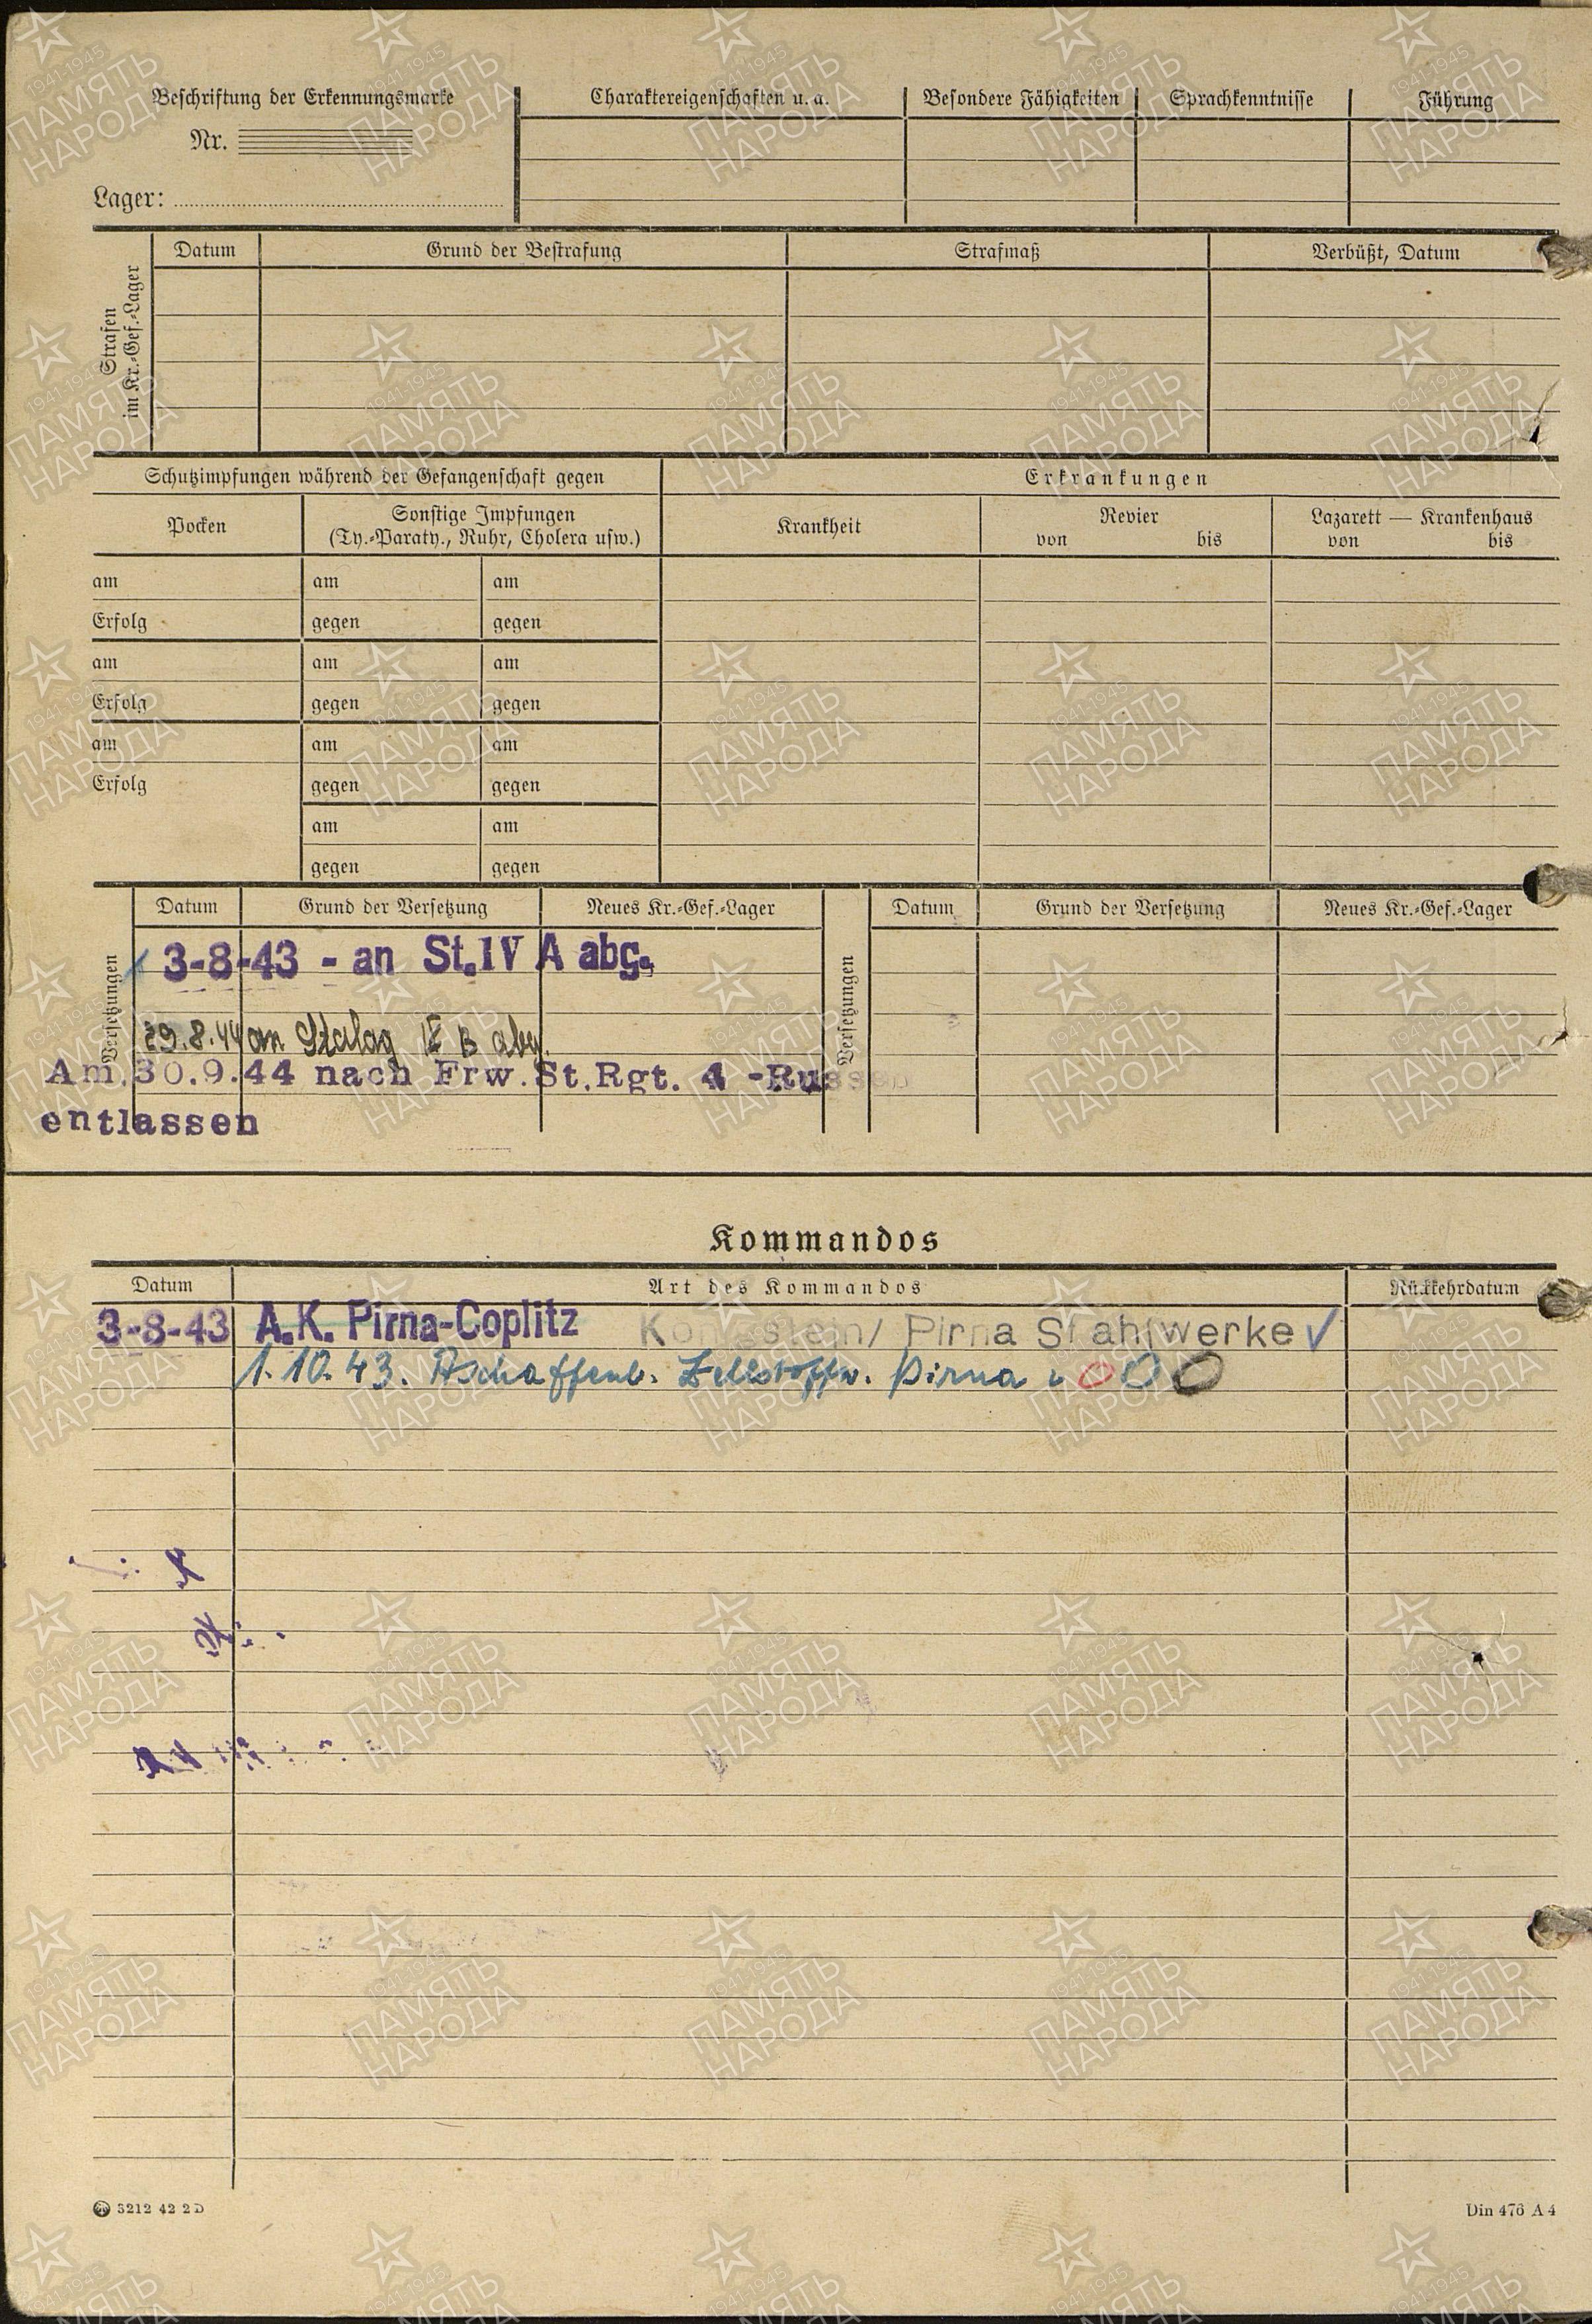 Beschriftung der Erkennungsmarke
Nr.
Lager:
Charaktereigenschaften u. a.
Besondere Fähigkeiten
Sprachkenntnisse
Führung
Strafen im Kr.-Gef.-Lager
Datum
Grund der Bestrafung
Strafmaß
Verbüßt, Datum
Schutzimpfungen während der Gefangenschaft gegen
Erkrankungen
Pocken
Sonstige Impfungen
(Ty.-Paraty., Ruhr, Cholera usw.)
Krankheit
Revier
von bis
Lazarett — Krankenhaus
von bis
am am am
Erfolg gegen gegen
am am am
Erfolg gegen gegen
am am am
Erfolg gegen gegen
am am
gegen gegen
Versetzungen
Datum Grund der Versetzung Neues Kr.-Gef.-Lager
Versetzungen
Datum Grund der Versetzung Neues Kr.-Gef.-Lager
3-8-43 - an St.IV A abg.
29.8.44 an Stalag B abg.
Am 30.9.44 nach Frw.St.Rgt. 4 -Russen
entlassen
Kommandos
Datum Art des Kommandos Rückkehrdatum
3-8-43 A.K. Pirna-Coplitz Königstein/ Pirna Stahlwerke
1.10.43. Aschaffenb. Zellstoffw. Pirna
3212 42 2 D
Din 476 A 4
1941-1945
ПАМЯТЬ
НАРОДА